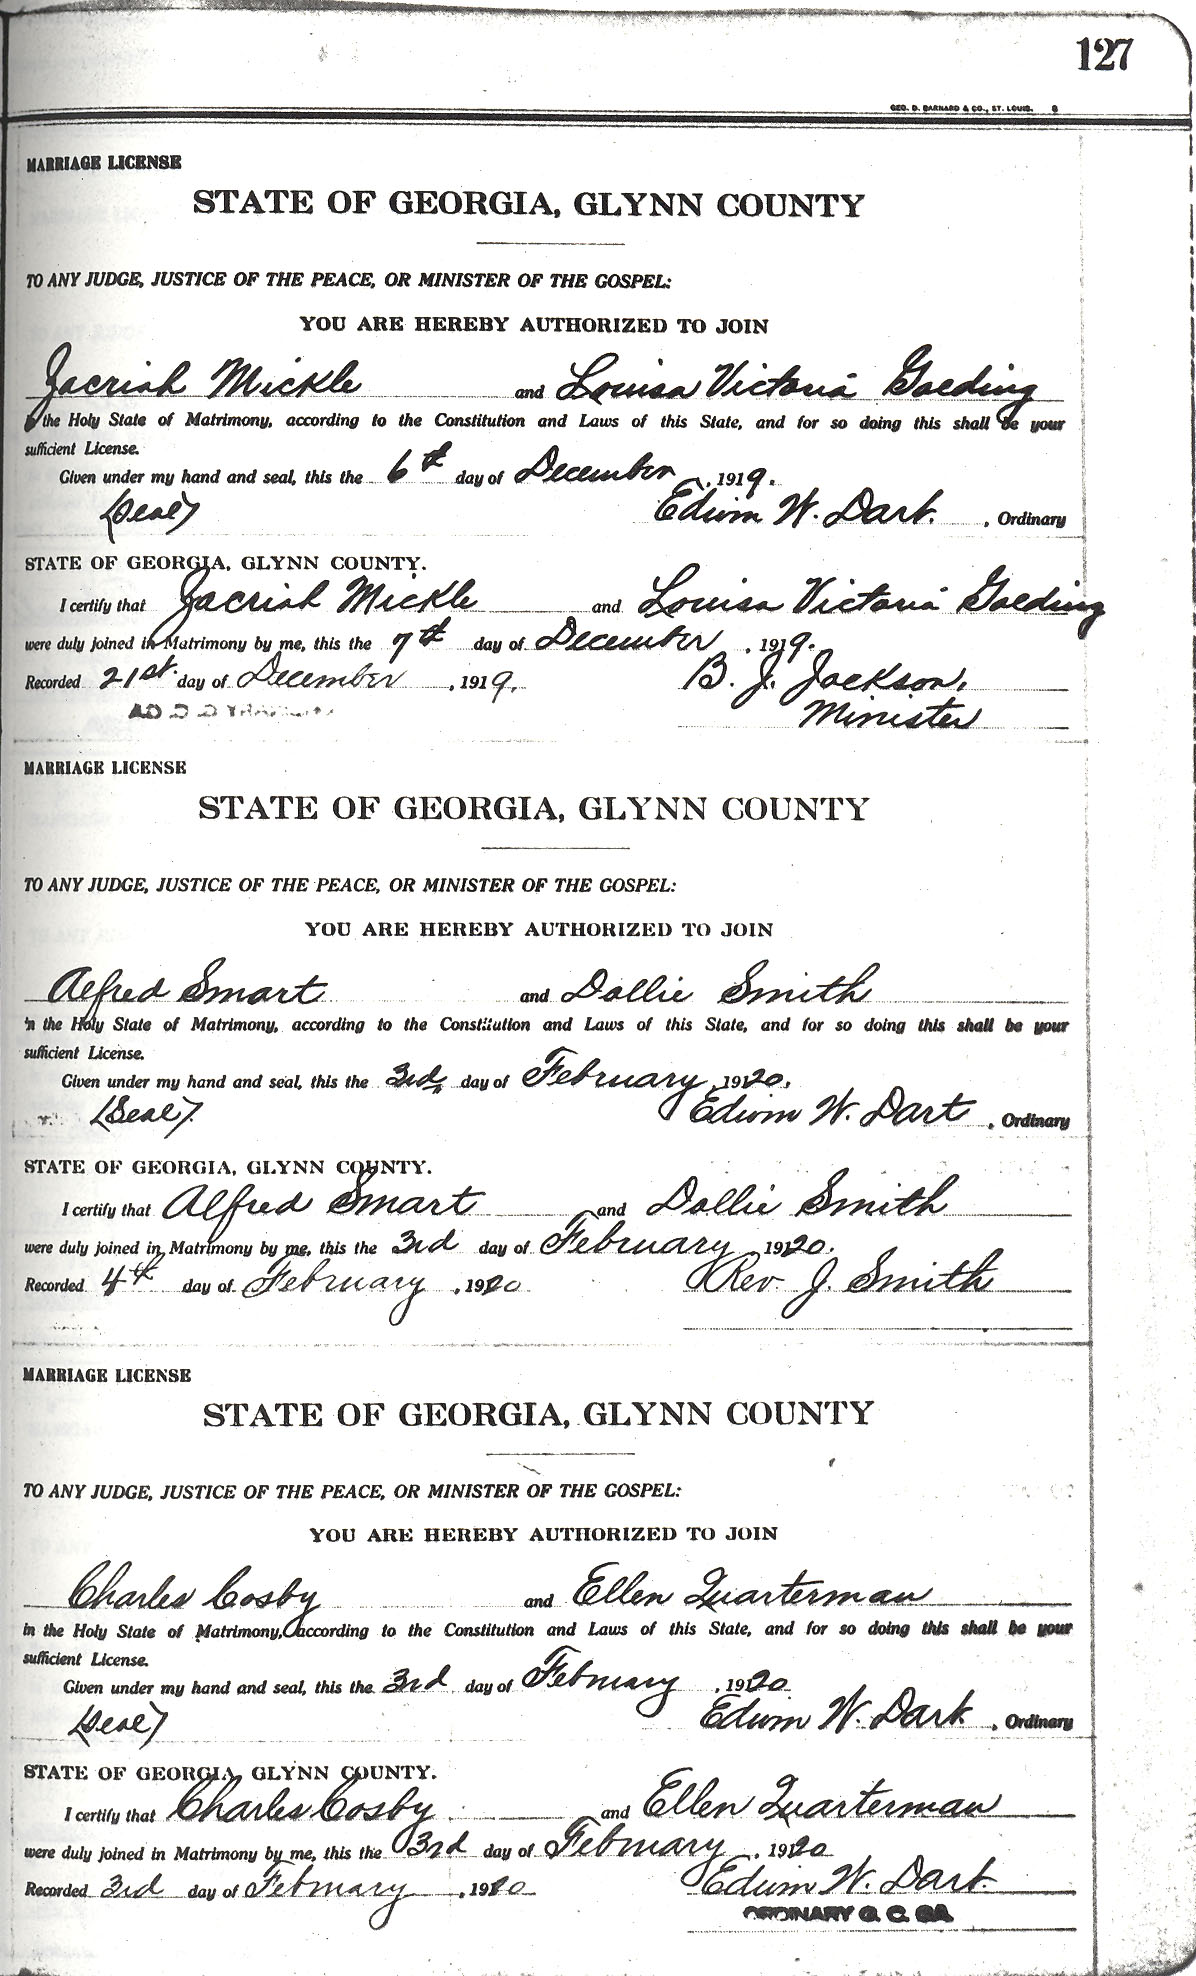 127
GEO. D. BARNARD & CO., ST. LOUIS. 8
MARRIAGE LICENSE
STATE OF GEORGIA, GLYNN COUNTY
TO ANY JUDGE, JUSTICE OF THE PEACE, OR MINISTER OF THE GOSPEL:
YOU ARE HEREBY AUTHORIZED TO JOIN
Jacriah Mickle and Louisa Victoria Golding
the Holy State of Matrimony, according to the Constitution and Laws of this State, and for so doing this shall be your
sufficient License.
Given under my hand and seal, this the 6th day of December, 1919.
(Seal) Edwin W. Dart. , Ordinary
STATE OF GEORGIA, GLYNN COUNTY.
I certify that Jacriah Mickle and Louisa Victoria Golding
were duly joined in Matrimony by me, this the 7th day of December, 1919.
Recorded 21st. day of December, 1919. B. J. Jackson,
Minister
MARRIAGE LICENSE
STATE OF GEORGIA, GLYNN COUNTY
TO ANY JUDGE, JUSTICE OF THE PEACE, OR MINISTER OF THE GOSPEL:
YOU ARE HEREBY AUTHORIZED TO JOIN
Alfred Smart and Dollie Smith
in the Holy State of Matrimony, according to the Constitution and Laws of this State, and for so doing this shall be your
sufficient License.
Given under my hand and seal, this the 3rd, day of February, 1920.
(Seal) Edwin W. Dart , Ordinary
STATE OF GEORGIA, GLYNN COUNTY.
I certify that Alfred Smart and Dollie Smith
were duly joined in Matrimony by me, this the 3rd day of February, 1920.
Recorded 4th day of February, 1920 Rev. J. Smith
MARRIAGE LICENSE
STATE OF GEORGIA, GLYNN COUNTY
TO ANY JUDGE, JUSTICE OF THE PEACE, OR MINISTER OF THE GOSPEL:
YOU ARE HEREBY AUTHORIZED TO JOIN
Charles Cosby and Ellen Quarterman
in the Holy State of Matrimony, according to the Constitution and Laws of this State, and for so doing this shall be your
sufficient License.
Given under my hand and seal, this the 3rd day of February, 1920
(Seal) Edwin W. Dart , Ordinary
STATE OF GEORGIA, GLYNN COUNTY.
I certify that Charles Cosby and Ellen Quarterman
were duly joined in Matrimony by me, this the 3rd day of February, 1920
Recorded 3rd day of February, 1920 Edwin W. Dart.
ORDINARY G. C. GA.